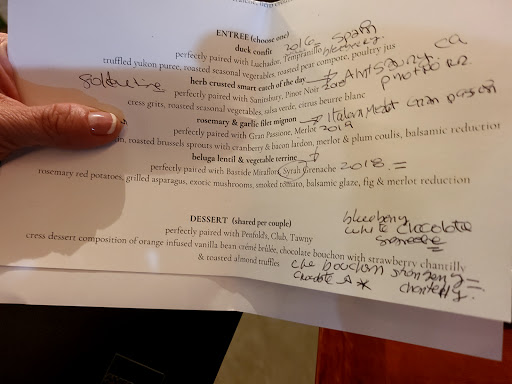 ENTREE (choose one)
duck confit 2016 Spain
perfectly paired with Luchador, Tempranillo blueberry
truffled yukon puree, roasted seasonal vegetables, roasted pear compote, poultry jus
herb crusted smart catch of the day → CA
perfectly paired with Sanitsbury, Pinot Noir pinot noir
cress grits, roasted seasonal vegetables, salsa verde, citrus beurre blanc
rosemary & garlic filet mignon → Italian Merlot Gran passion
perfectly paired with Gran Passione, Merlot 2019
roasted brussels sprouts with cranberry & bacon lardon, merlot & plum coulis, balsamic reduction
beluga lentil & vegetable terrine
perfectly paired with Bastide Miraflors, Syrah Grenache 2018 =
rosemary red potatoes, grilled asparagus, exotic mushrooms, smoked tomato, balsamic glaze, fig & merlot reduction
DESSERT (shared per couple) blueberry
perfectly paired with Penfold's, Club, Tawny white chocolate
cress dessert composition of orange infused vanilla bean crémé brûlée, chocolate bouchon with strawberry chantilly
& roasted almond truffles